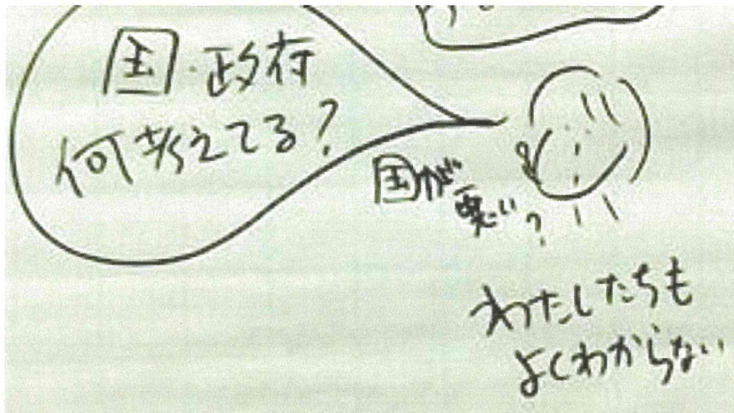 国・政府
何考えてる?
国が
悪い?
わたしたちも
よくわからない